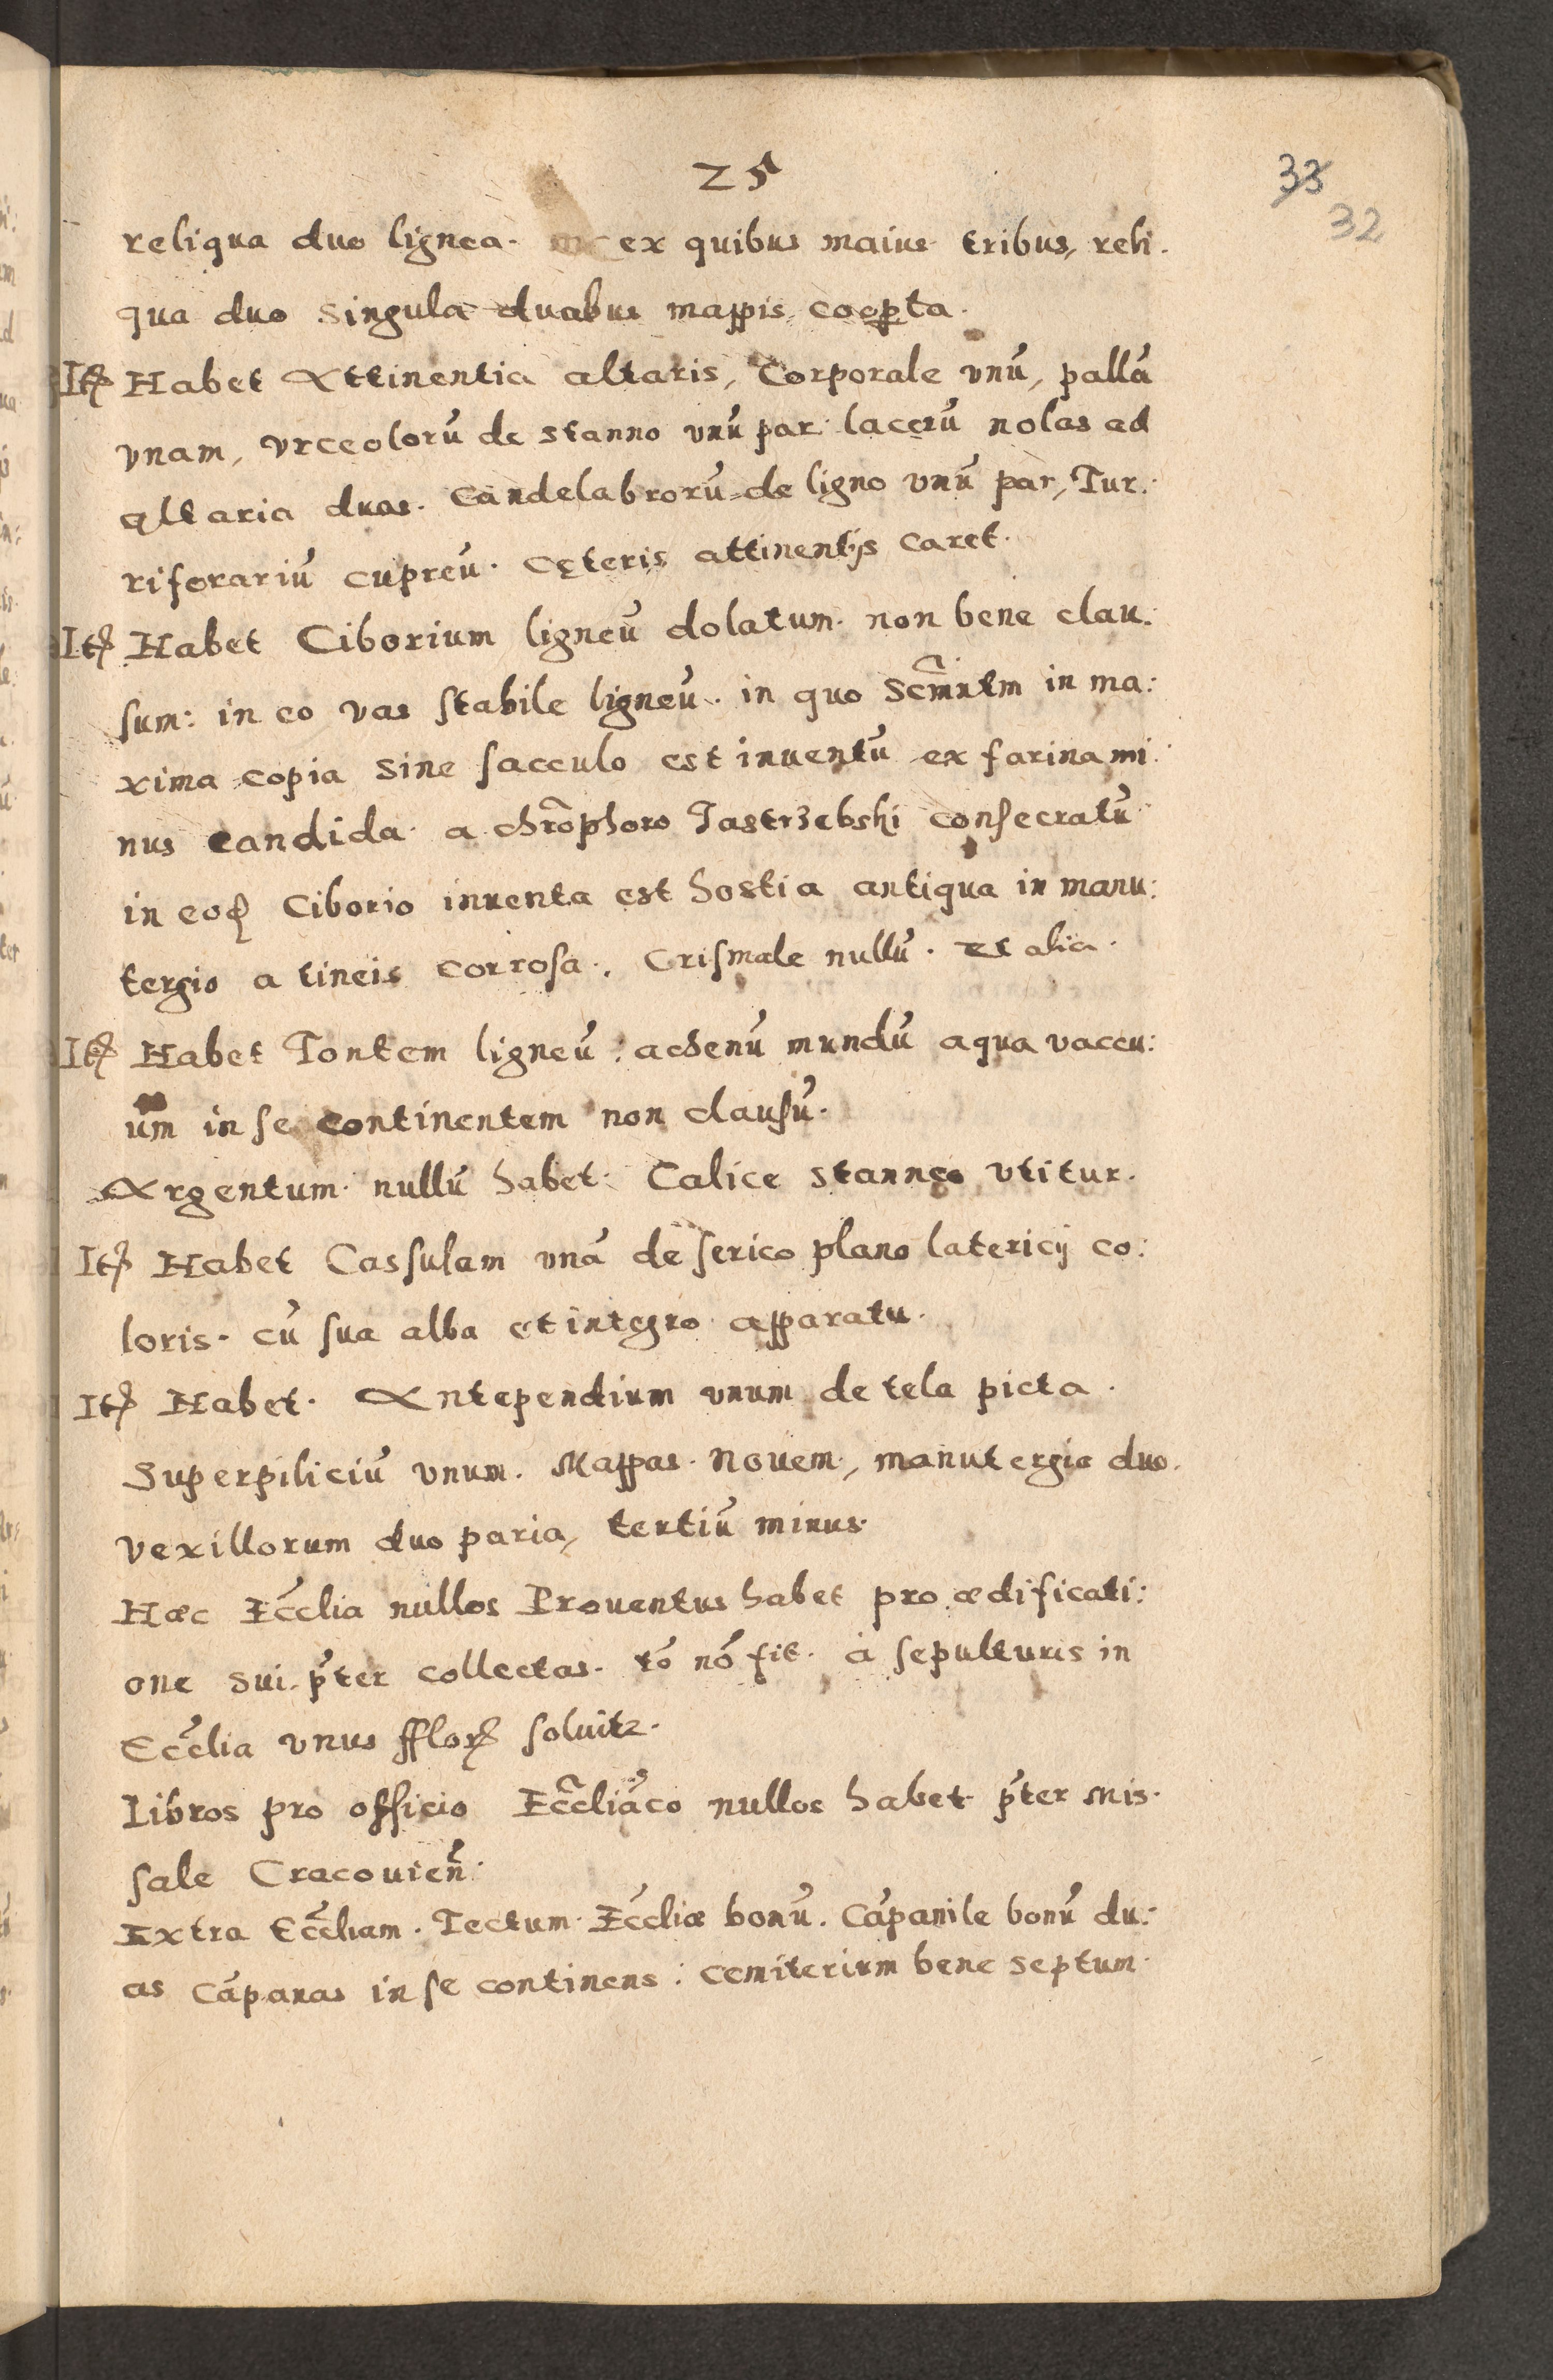 25
33
32
reliqua duo lignea. ex quibus maius tribus, reli.
qua duo singula duabus mappis coopta.
Itē Habet Attinentia altaris, Corporale vnū, pallā
vnam, vrceolorū de stanno vnū par lacerū nolas ad
altaria duas. Candelabrorū de ligno vnū par, Tur:
riferariū cupreū. Cęteris attinentijs caret.
Itē Habet Ciborium ligneū dolatum. non bene clau:
sum: in eo vas stabile ligneū. in quo Scm̃ntm in ma:
xima copia sine sacculo est inuentū ex farina mi:
nus candida. a chrõphoro Jastrzebski consecratū
in eodē Ciborio inuenta est hostia antiqua in manu:
tergio a tineis corrosa. Crismale nullū. et alia.
Itē Habet Fontem ligneū: achenū mundū aqua vaccu:
um̄ in se continentem non clausū.
Argentum nullū habet. Calice stanneo vtitur.
Itē Habet Cassulam vnā de serico plano latericij co:
loris. cū sua alba et integro apparatu.
Itē Habet. Antependium vnum de tela picta.
Superpiliciū vnum. Mappas. Nouem, manutergia duo.
vexillorum duo paria, tertiū minus.
Hæc Ecc̃lia nullos Prouentus habet pro ædificati:
one sui. p̄ter collectas. rō nō fit. à sepulturis in
Ecc̃lia vnus fflorē soluitr.
Libros pro officio Ecc̃liãco nullos habet p̄ter Mis.
sale Cracouieñ.
Extra Ecc̃liam. Tectum Ecc̃liæ bonū. Cāpanile bonū du:
as cāpanas in se continens: cemiterium bene septum.